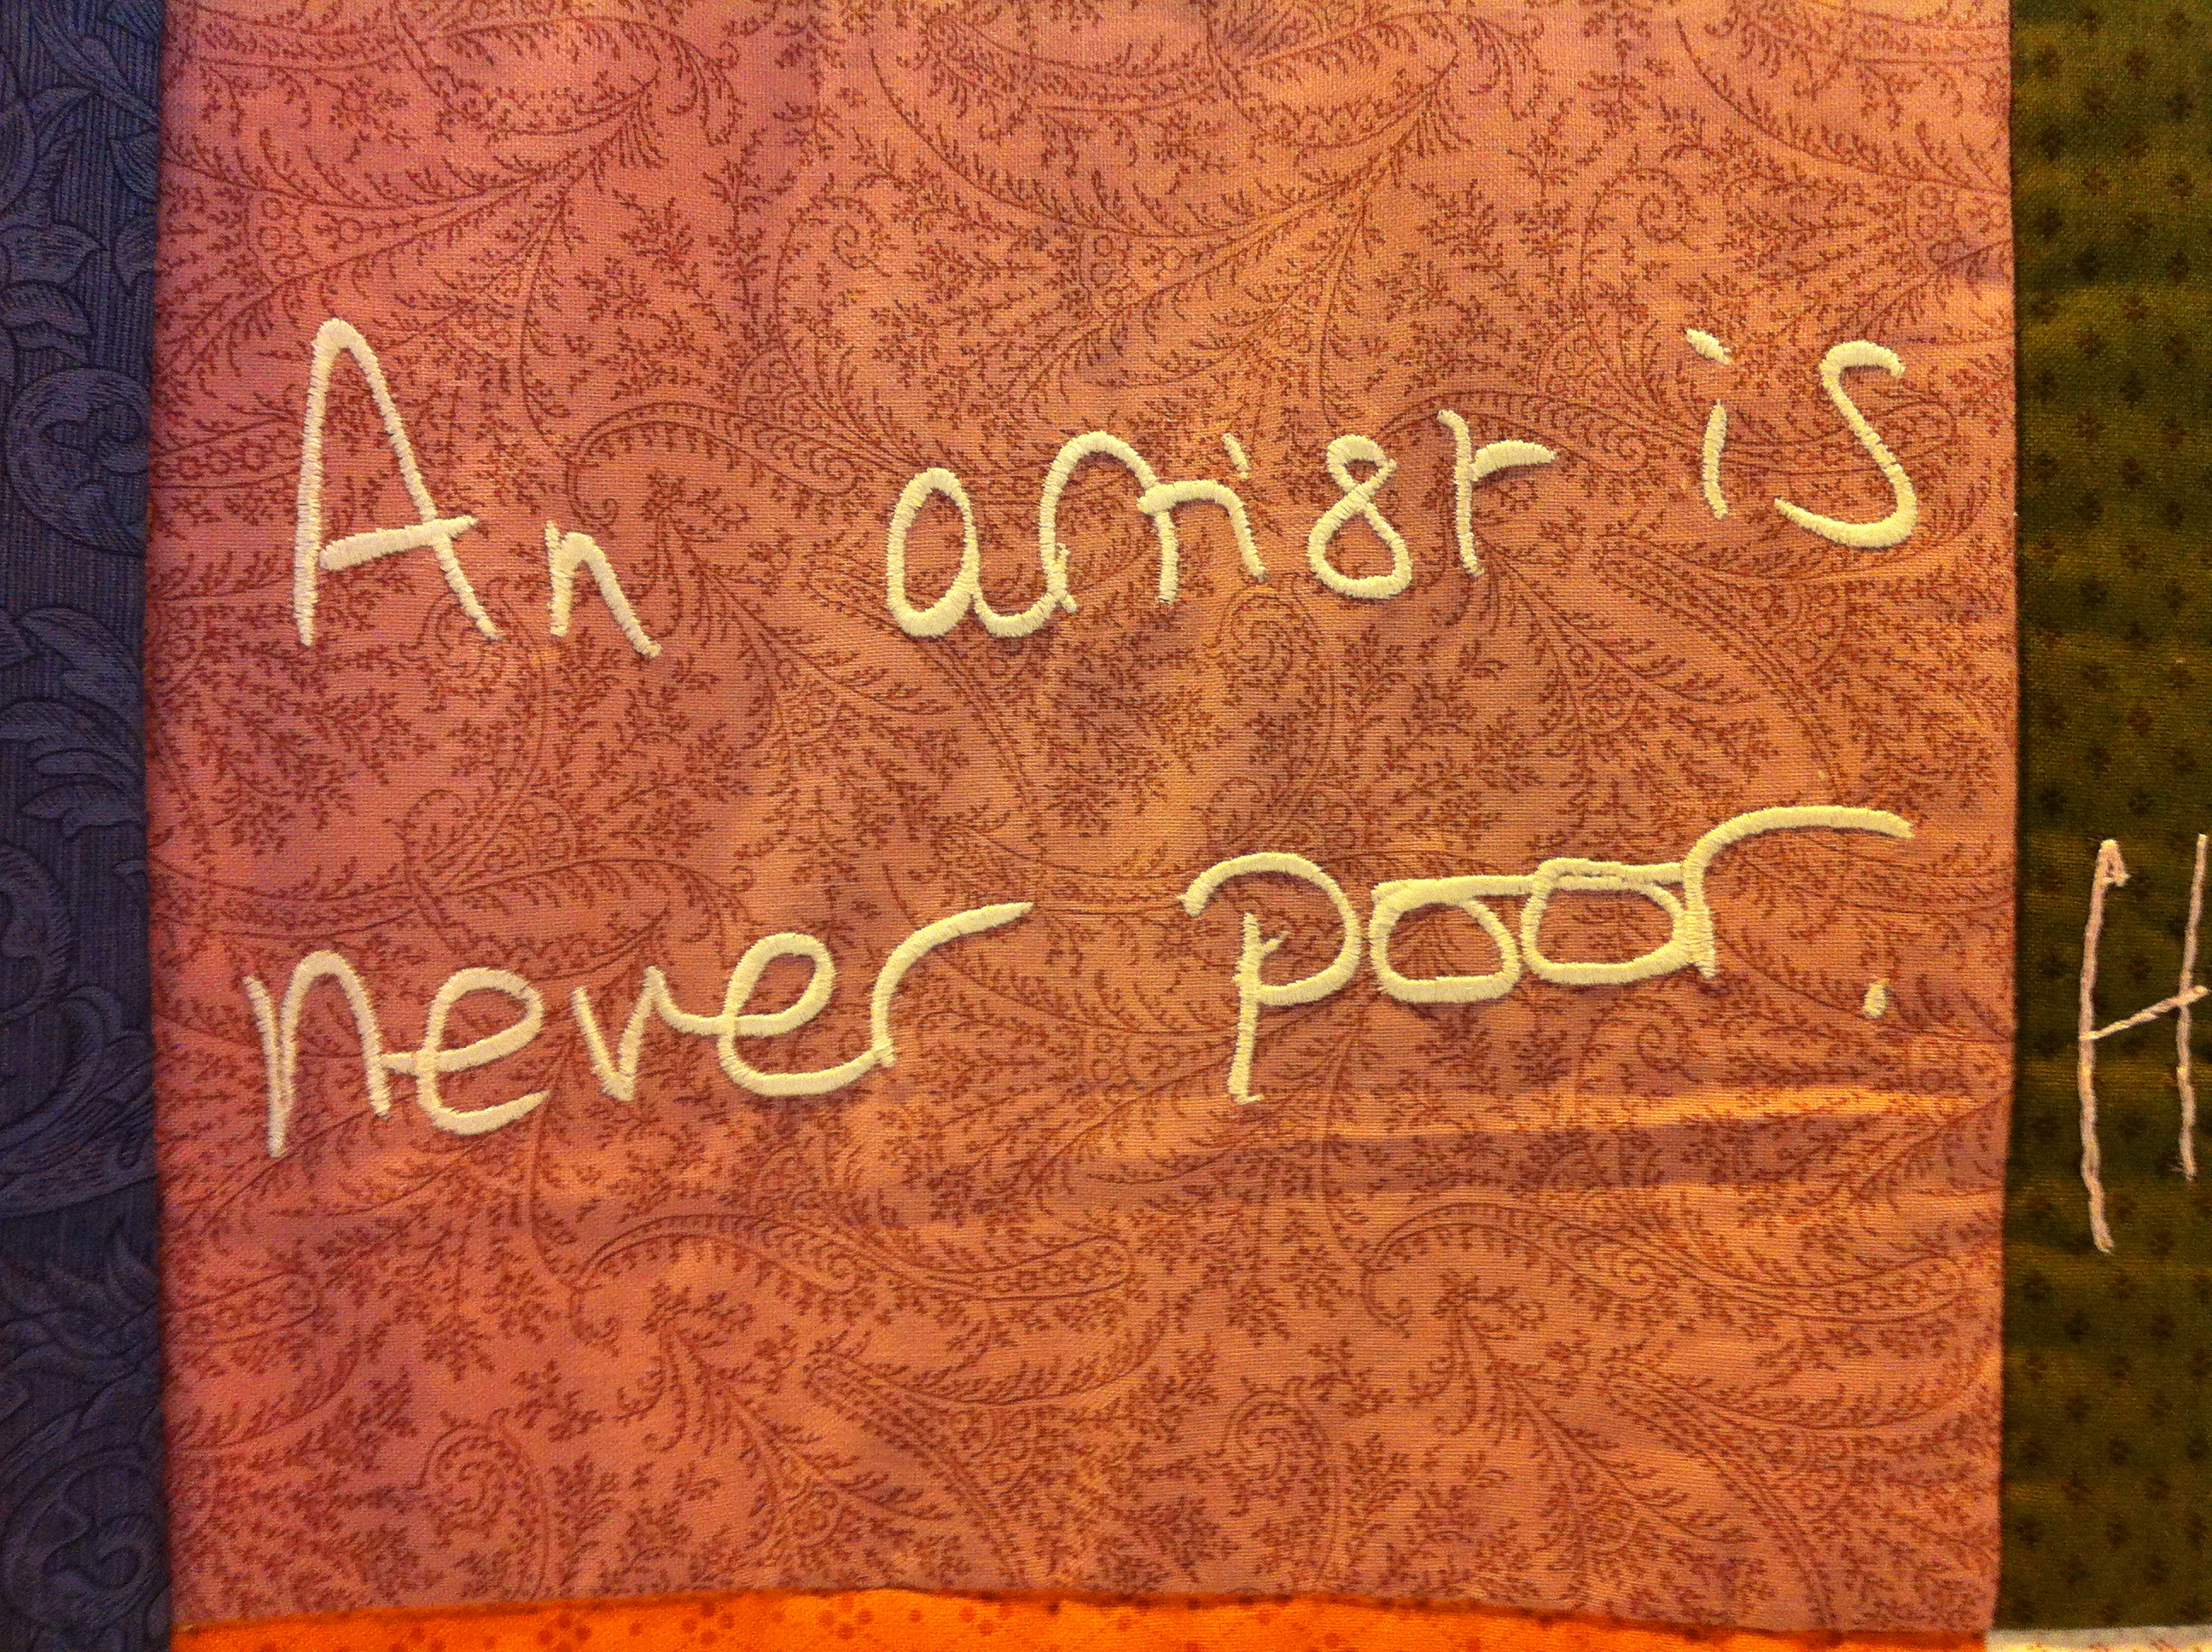 An artist is
never poor.
H